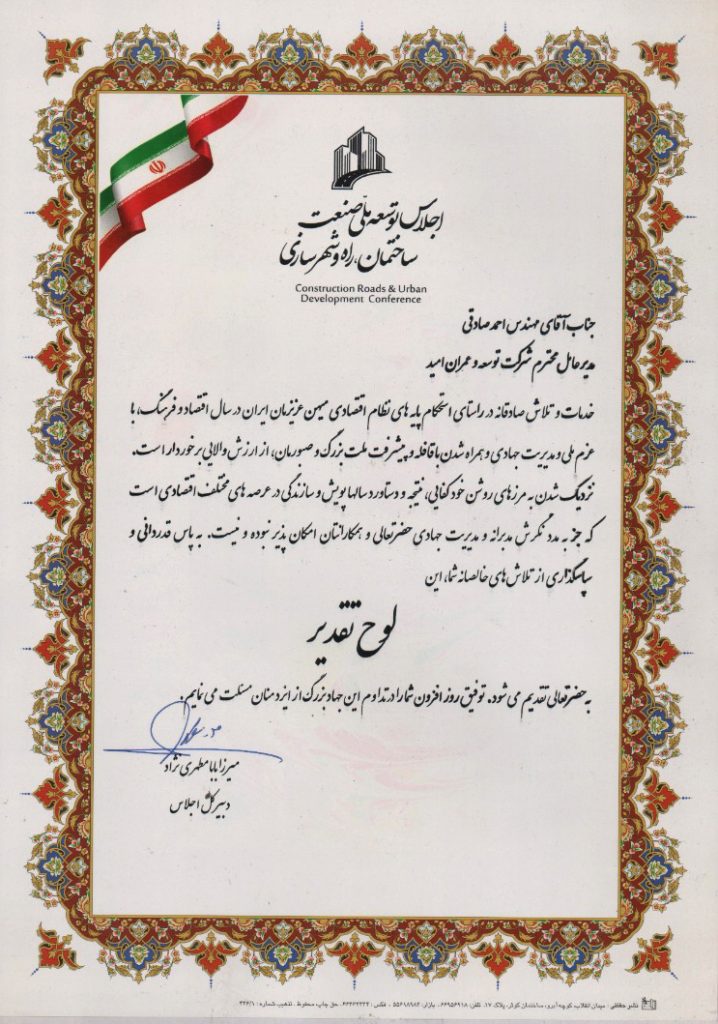 اجلاس توسعه ملی صنعت
ساختمان، راه و شهرسازی
Construction Roads & Urban
Development Conference
جناب آقای مهندس احمد صادقی
مدیرعامل محترم شرکت توسعه و عمران امید
خدمات و تلاش صادقانه در راستای استحکام پایه های نظام اقتصادی میهن عزیزمان ایران در سال اقتصاد و فرهنگ، با
عزم ملی و مدیریت جهادی و همراه شدن با قافله و پیشرفت ملت بزرگ و صبورمان، از ارزش والایی برخوردار است.
نزدیک شدن به مرزهای روشن خودکفایی، نتیجه و دستاورد سالها پویش و سازندگی در عرصه های مختلف اقتصادی است
که جز به مدد نگرش مدبرانه و مدیریت جهادی حضرتعالی و همکارانتان امکان پذیر نبوده و نیست. به پاس قدردانی و
سپاسگذاری از تلاش های خالصانه شما، این
لوح تقدیر
به حضرتعالی تقدیم می شود. توفیق روز افزون شما را در تداوم این جهاد بزرگ از ایزد منان مسئلت می نمایم.
میرزابابا مطهری نژاد
دبیر کل اجلاس
نشر حقیقی : میدان انقلاب، کوچه آبرو، ساختمان کوثر، پلاک ۱۷، تلفن: ۶۶۹۵۶۹۱۸ بازار: ۵۵۶۹۸۹۸۴ - فکس: حق چاپ محفوظ . تذهیب شماره : ۳۴۶/۱